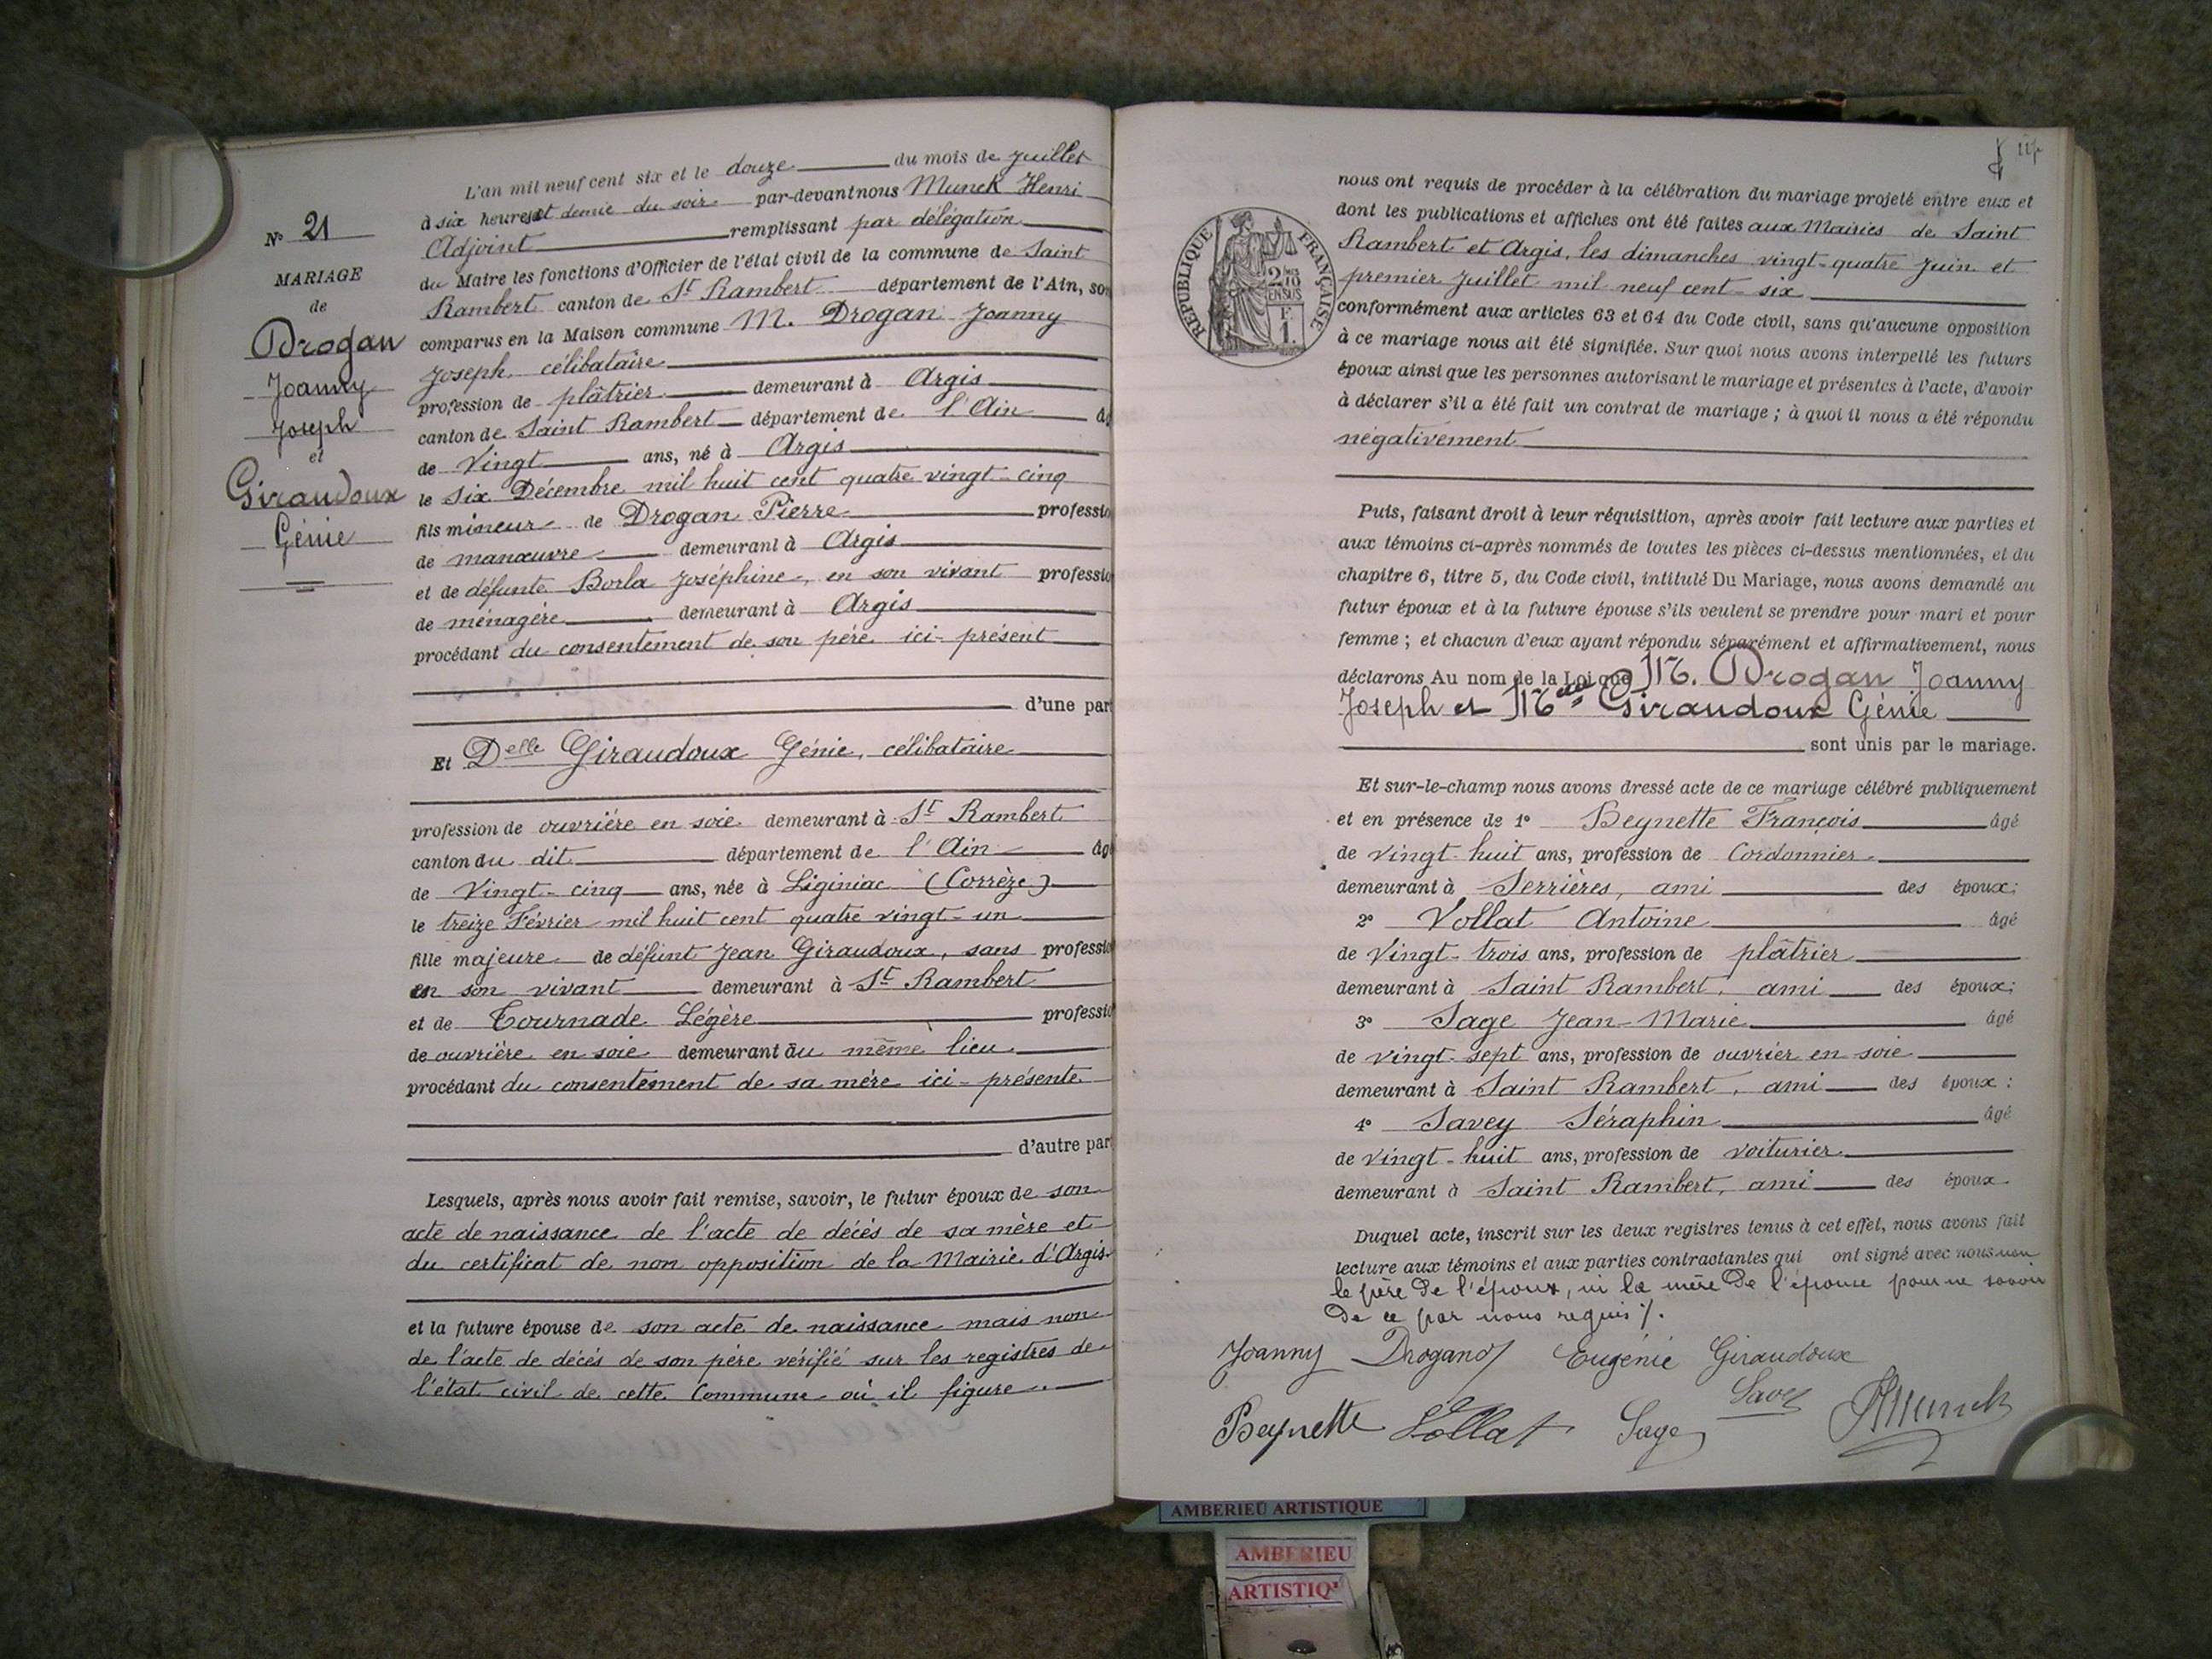 N° 21
MARIAGE
de
Drogan
Joanny
Joseph
et
Giraudoux
Génie
L'an mil neuf cent six et le douze du mois de Juillet
à six heures et demie du soir par-devant nous Munck Henri
Adjoint remplissant par délégation
du Maire les fonctions d'Officier de l'état civil de la commune de Saint
Rambert canton de St Rambert département de l'Ain, son
comparus en la Maison commune M. Drogan Joanny
Joseph, célibataire
profession de plâtrier demeurant à Argis
canton de Saint Rambert département de l'Ain âg
de Vingt ans, né à Argis
le six Décembre mil huit cent quatre vingt-cinq
fils mineur de Drogan Pierre professio
de manœuvre demeurant à Argis
et de défunte Borla Joséphine, en son vivant professio
de ménagère demeurant à Argis
procédant du consentement de son père ici-présent
d'une part
Et Delle Giraudoux Génie, célibataire
profession de ouvrière en soie demeurant à St Rambert
canton du dit département de l'Ain âgé
de Vingt-cinq ans, née à Liginiac (Corrèze)
le treize Février mil huit cent quatre vingt-un
fille majeure de défunt Jean Giraudoux, sans professio
en son vivant demeurant à St Rambert
et de Tournade Légère professio
de ouvrière en soie demeurant au même lieu
procédant du consentement de sa mère ici-présente
d'autre part
Lesquels, après nous avoir fait remise, savoir, le futur époux de son
acte de naissance de l'acte de décès de sa mère et
du certificat de non opposition de la Mairie d'Argis
et la future épouse de son acte de naissance mais non
de l'acte de décès de son père vérifié sur les registres de
l'état civil de cette Commune où il figure.
nous ont requis de procéder à la célébration du mariage projeté entre eux et
dont les publications et affiches ont été faites aux Mairies de Saint
Rambert et Argis, les dimanches vingt-quatre Juin et
premier Juillet mil neuf cent six
conformément aux articles 63 et 64 du Code civil, sans qu'aucune opposition
à ce mariage nous ait été signifiée. Sur quoi nous avons interpellé les futurs
époux ainsi que les personnes autorisant le mariage et présentes à l'acte, d'avoir
à déclarer s'il a été fait un contrat de mariage ; à quoi il nous a été répondu
négativement
RÉPUBLIQUE FRANÇAISE
2/10
EN SUS
F.
1.
Puis, faisant droit à leur réquisition, après avoir fait lecture aux parties et
aux témoins ci-après nommés de toutes les pièces ci-dessus mentionnées, et du
chapitre 6, titre 5, du Code civil, intitulé Du Mariage, nous avons demandé au
futur époux et à la future épouse s'ils veulent se prendre pour mari et pour
femme ; et chacun d'eux ayant répondu séparément et affirmativement, nous
déclarons Au nom de la Loi que M. Drogan Joanny
Joseph et Melle Giraudoux Génie
sont unis par le mariage.
Et sur-le-champ nous avons dressé acte de ce mariage célébré publiquement
et en présence de 1° Beynette François âgé
de vingt-huit ans, profession de Cordonnier
demeurant à Serrières, ami des époux;
2° Vollat Antoine âgé
de Vingt-trois ans, profession de plâtrier
demeurant à Saint Rambert, ami des époux;
3° Sage Jean-Marie âgé
de vingt-sept ans, profession de ouvrier en soie
demeurant à Saint Rambert, ami des époux;
4° Savey Séraphin âgé
de vingt-huit ans, profession de voiturier
demeurant à Saint Rambert, ami des époux.
Duquel acte, inscrit sur les deux registres tenus à cet effet, nous avons fait
lecture aux témoins et aux parties contractantes qui ont signé avec nous non
le père de l'époux, ni la mère de l'épouse pour ne savoir
de ce par nous requis /.
Joanny Drogand Eugénie Giraudoux
Savey
Beynette Vollat Sage HMunck
AMBERIEU ARTISTIQUE
AMBERIEU
ARTISTIQ